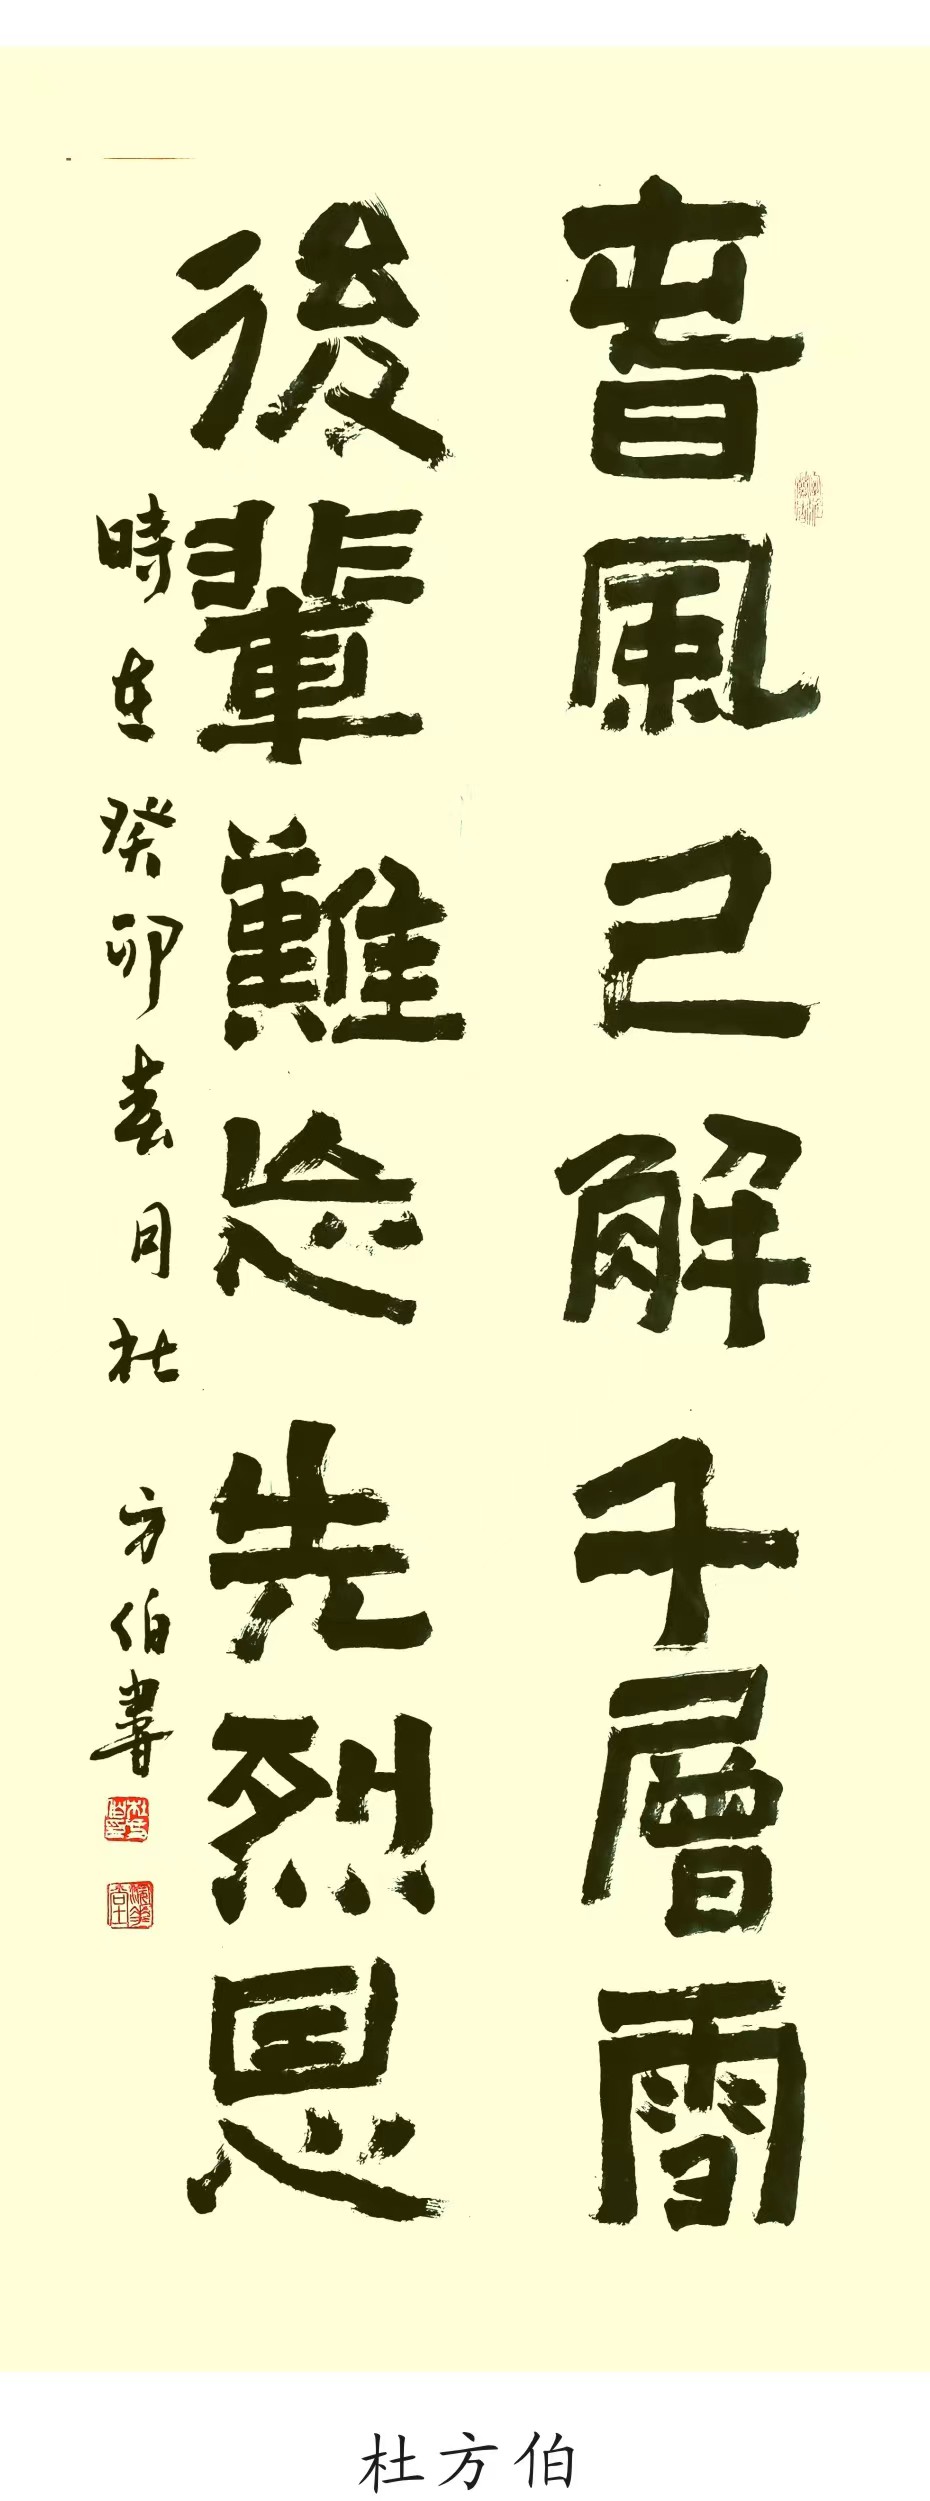 春風已解千層雪
後輩難忘先烈恩
時在癸卯春月杜方伯書
杜方伯